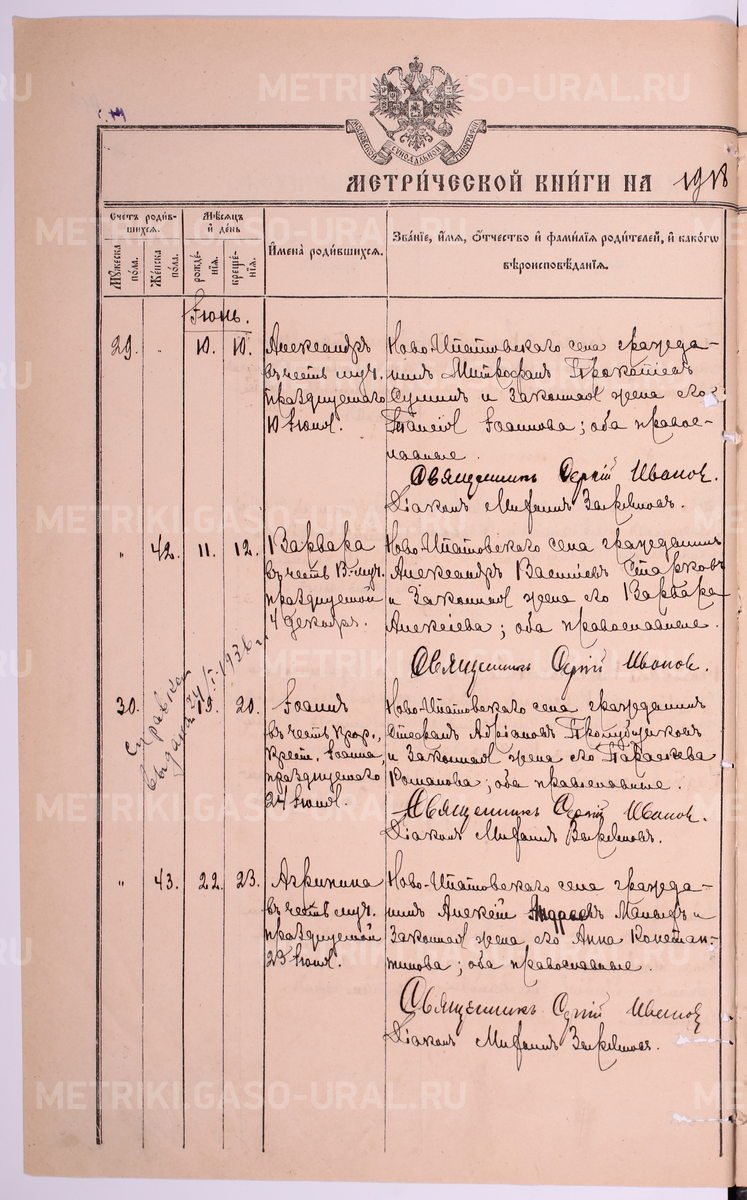 МОСКОВСКОЙ СУНОДАЛЬНОЙ ТИПОГРАФІИ
МЕТРИ́ЧЕСКОЙ КНИ́ГИ НА 1918
Счетъ роди́в-
шихся.
Мѣсяцъ
и́ де́нь
И҆мена̀ роди́вшихся.
Зва́нїе, и҆́мя, ѻ҆́тчество и҆ фами́лїя роди́телей, и҆ како́гѡ
вѣроисповѣ́данїя.
Мꙋжеска по́ла.
Же́нска по́ла.
рожде́нїя.
креще́нїя.
Іюнь.
29. " 10. 10.
Александръ
въ честь муч.
празднуемаго
10 Іюня.
Ново-Ипатовскаго села гражда-
нинъ Митрофанъ Прокопіевъ
и законная жена его
Іоаннова; оба право-
славные.
Священникъ Сергій Ивановъ.
Діаконъ
" 42. 11. 12.
Варвара
въ честь В.-муч.
празднуемой
4 Декабр.
Ново-Ипатовскаго села гражданинъ
Александръ Васильевъ Старковъ
и законная жена его Варвара
Алексіева; оба православные.
Священникъ Сергій Ивановъ.
Справка
выдана 24/I 1936 г
30. 19. 20.
Іоаннъ
въ честь прор.,
крест. Іоанна,
празднуемаго
24 Іюня.
Ново-Ипатовскаго села гражданинъ
Стефанъ Адріановъ
и законная жена его Параскева
Романова; оба православные.
Священникъ Сергій Ивановъ.
Діаконъ
" 43. 22. 23.
Агрипина
въ честь муч.
празднуемой
23 Іюня.
Ново-Ипатовскаго села гражда-
нинъ Алексій Андреевъ и
законная жена его Анна Констан-
тинова; оба православные.
Священникъ Сергій Ивановъ
Діаконъ
METRIKI.GASO-URAL.RU